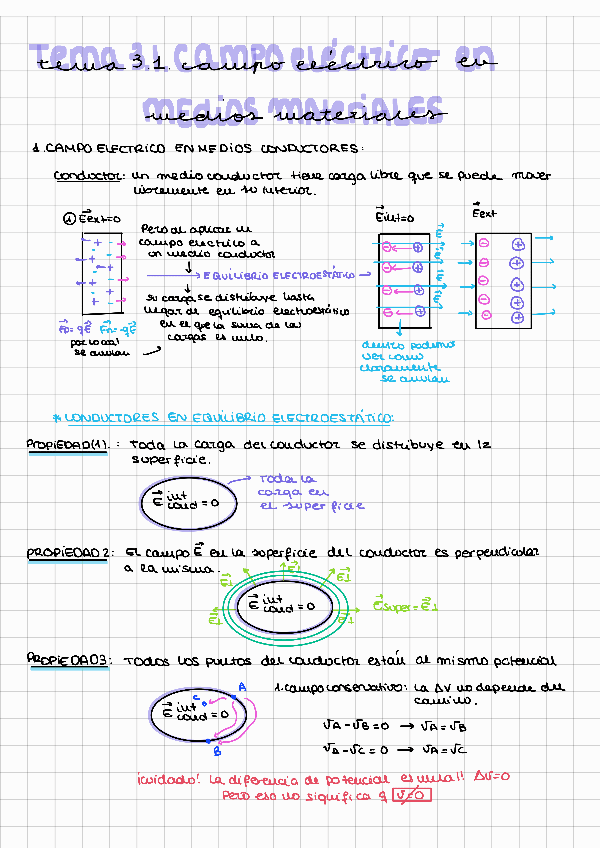 Tema 3.1. Campo eléctrico en
medios materiales
1. CAMPO ELECTRICO EN MEDIOS CONDUCTORES:
Conductor: un medio conductor tiene carga libre que se puede mover
libremente en su interior.
① E⃗ext=0
Pero al aplicar un
campo electrico a
un medio conductor
EQUILIBRIO ELECTROESTÁTICO
su carga se distribuye hasta
llegar al equilibrio electroestático
en el que la suma de las
cargas es nulo.
por lo cual
se anulan
E⃗int=0
E⃗ext
dentro podemos
ver como
claramente
se anulan
* CONDUCTORES EN EQUILIBRIO ELECTROESTÁTICO:
PROPIEDAD(1).: Toda la carga del conductor se distribuye en la
superficie.
E⃗ int cond = 0
Toda la
carga en
el superficie
PROPIEDAD 2: El campo E⃗ en la superficie del conductor es perpendicular
a la misma.
E⃗⊥
E⃗⊥
E⃗⊥
E⃗ int cond = 0
E⃗super = E⃗⊥
E⃗⊥
E⃗⊥
PROPIEDAD3: Todos los puntos del conductor están al mismo potencial
C
A
E⃗ int cond = 0
B
1. campo conservativo: La ΔV no depende del
camino.
VA - VB = 0 → VA = VB
VA - VC = 0 → VA = VC
¡cuidado! La diferencia de potencial es nula!! ΔV=0
Pero eso no significa q V=0